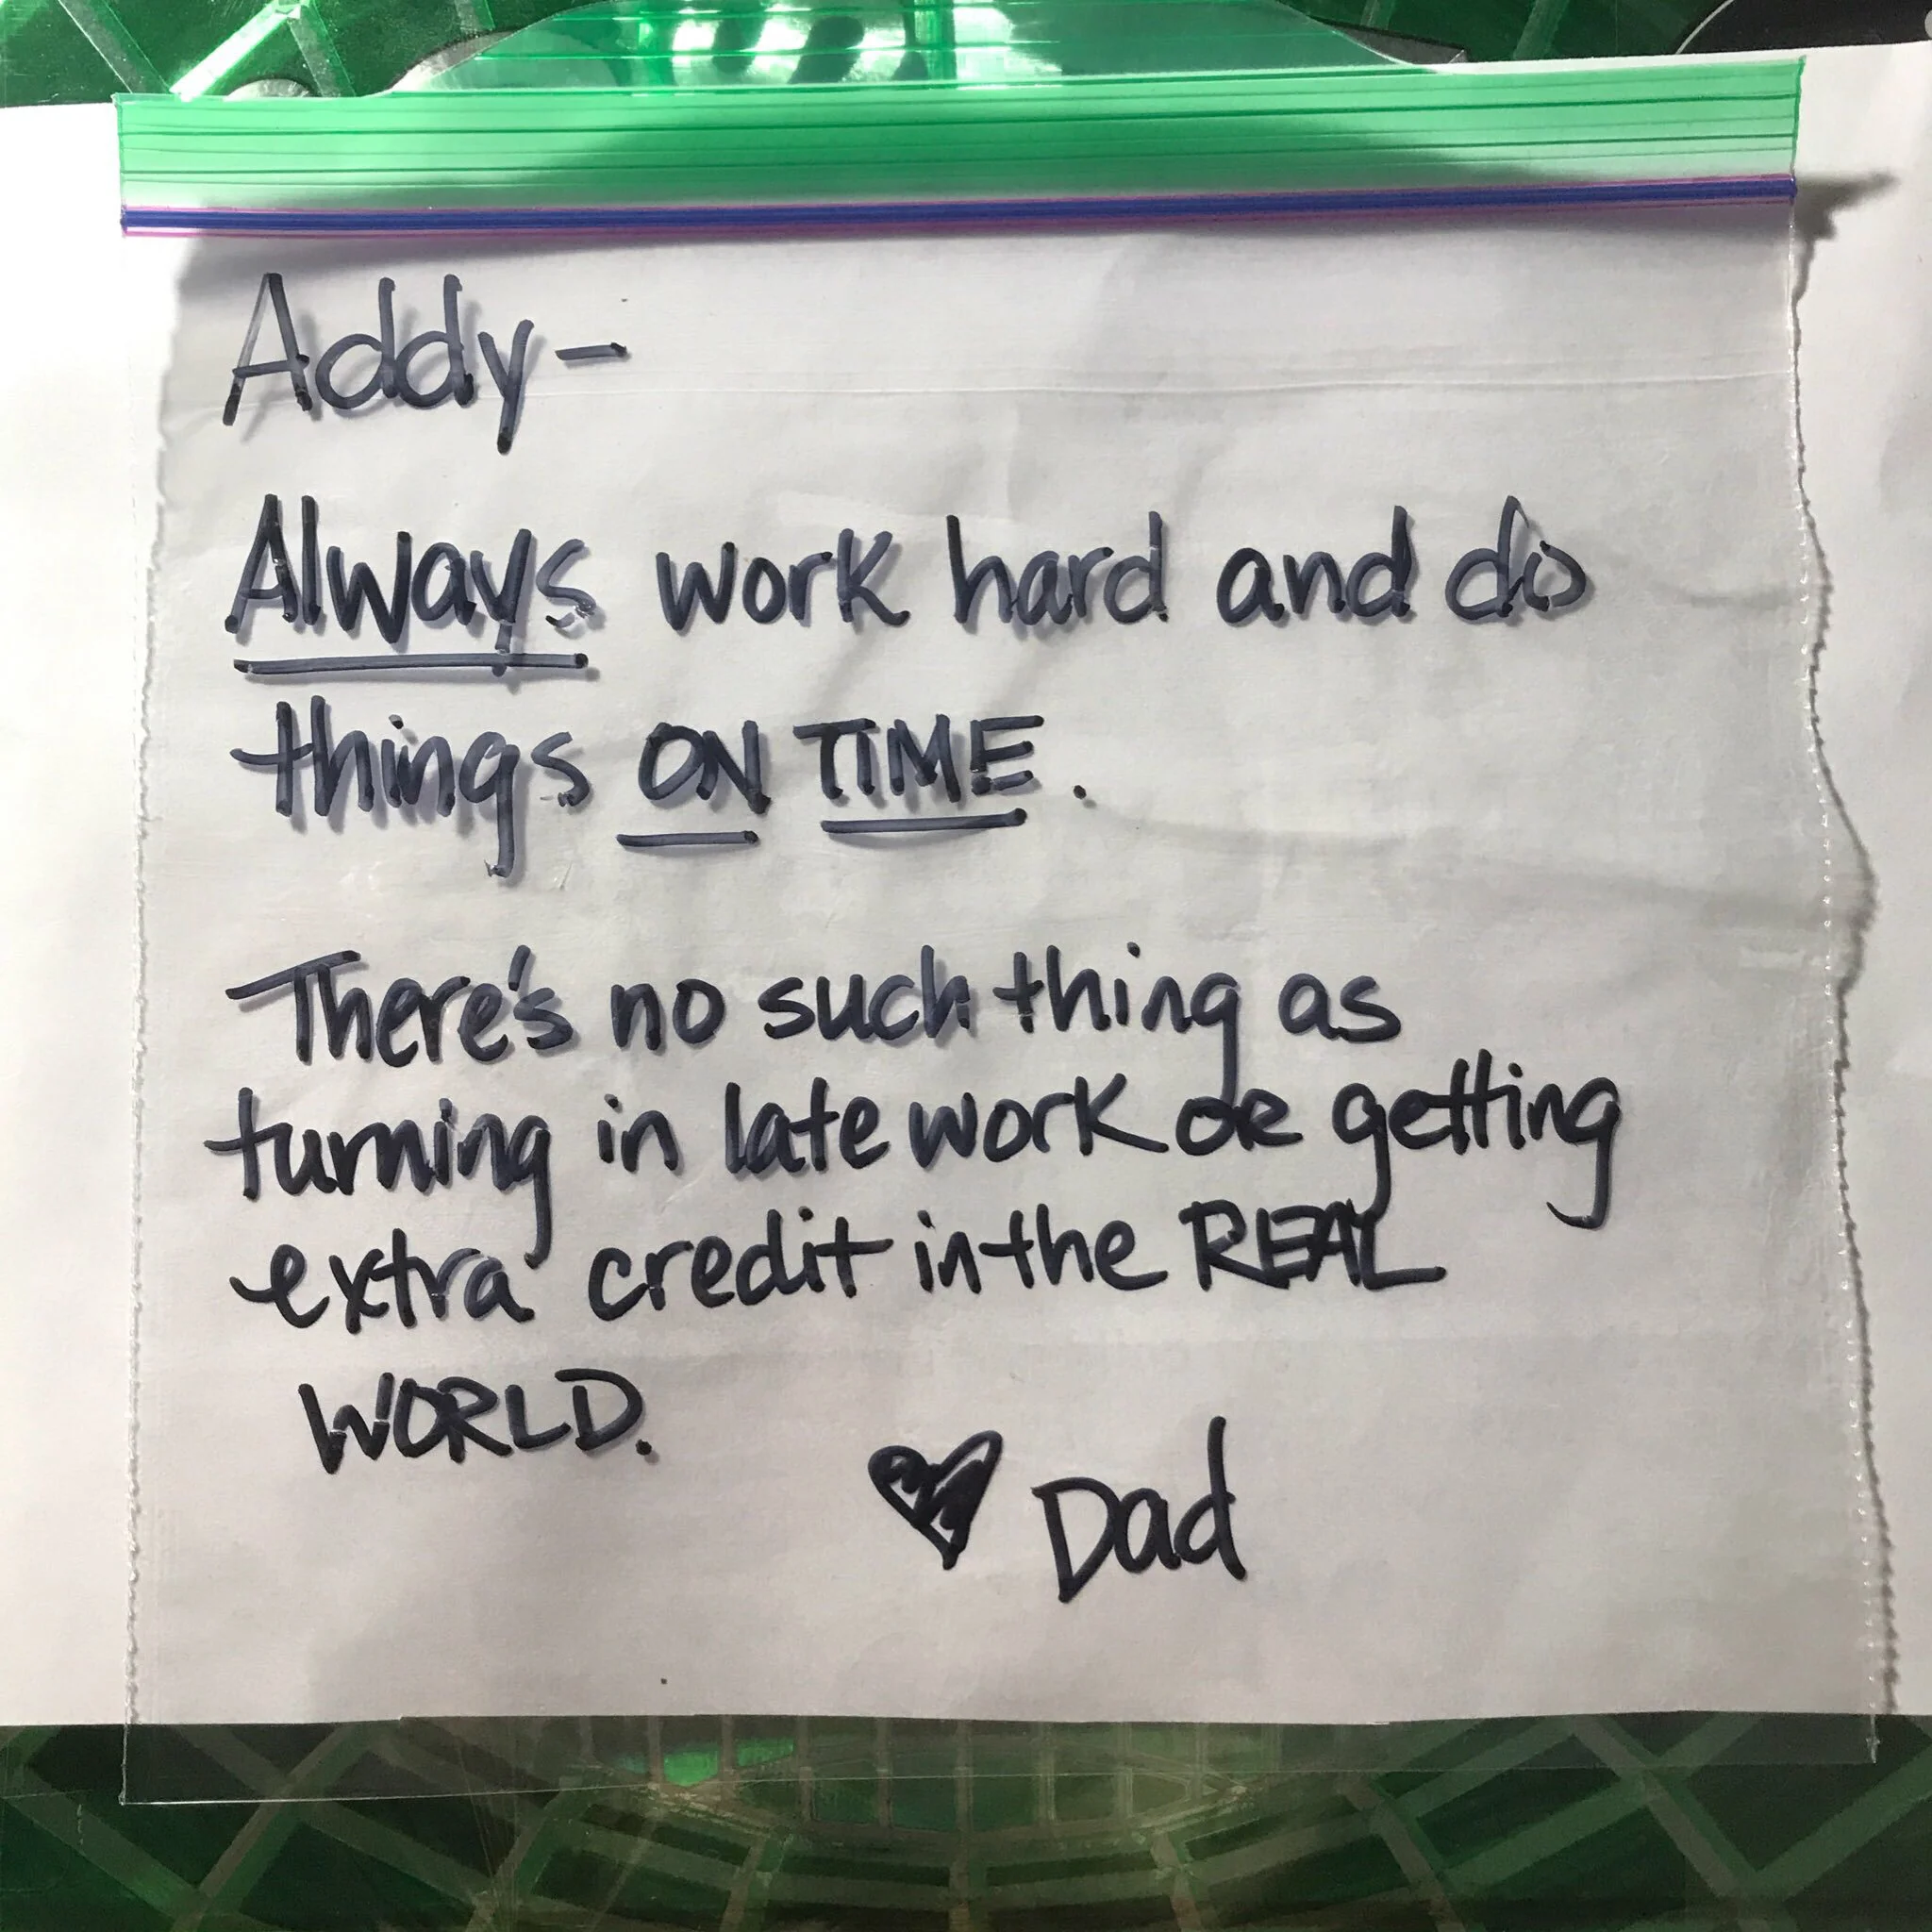 Addy-
Always work hard and do
things ON TIME.
There's no such thing as
turning in late work or getting
extra credit in the REAL
WORLD.
♥ Dad